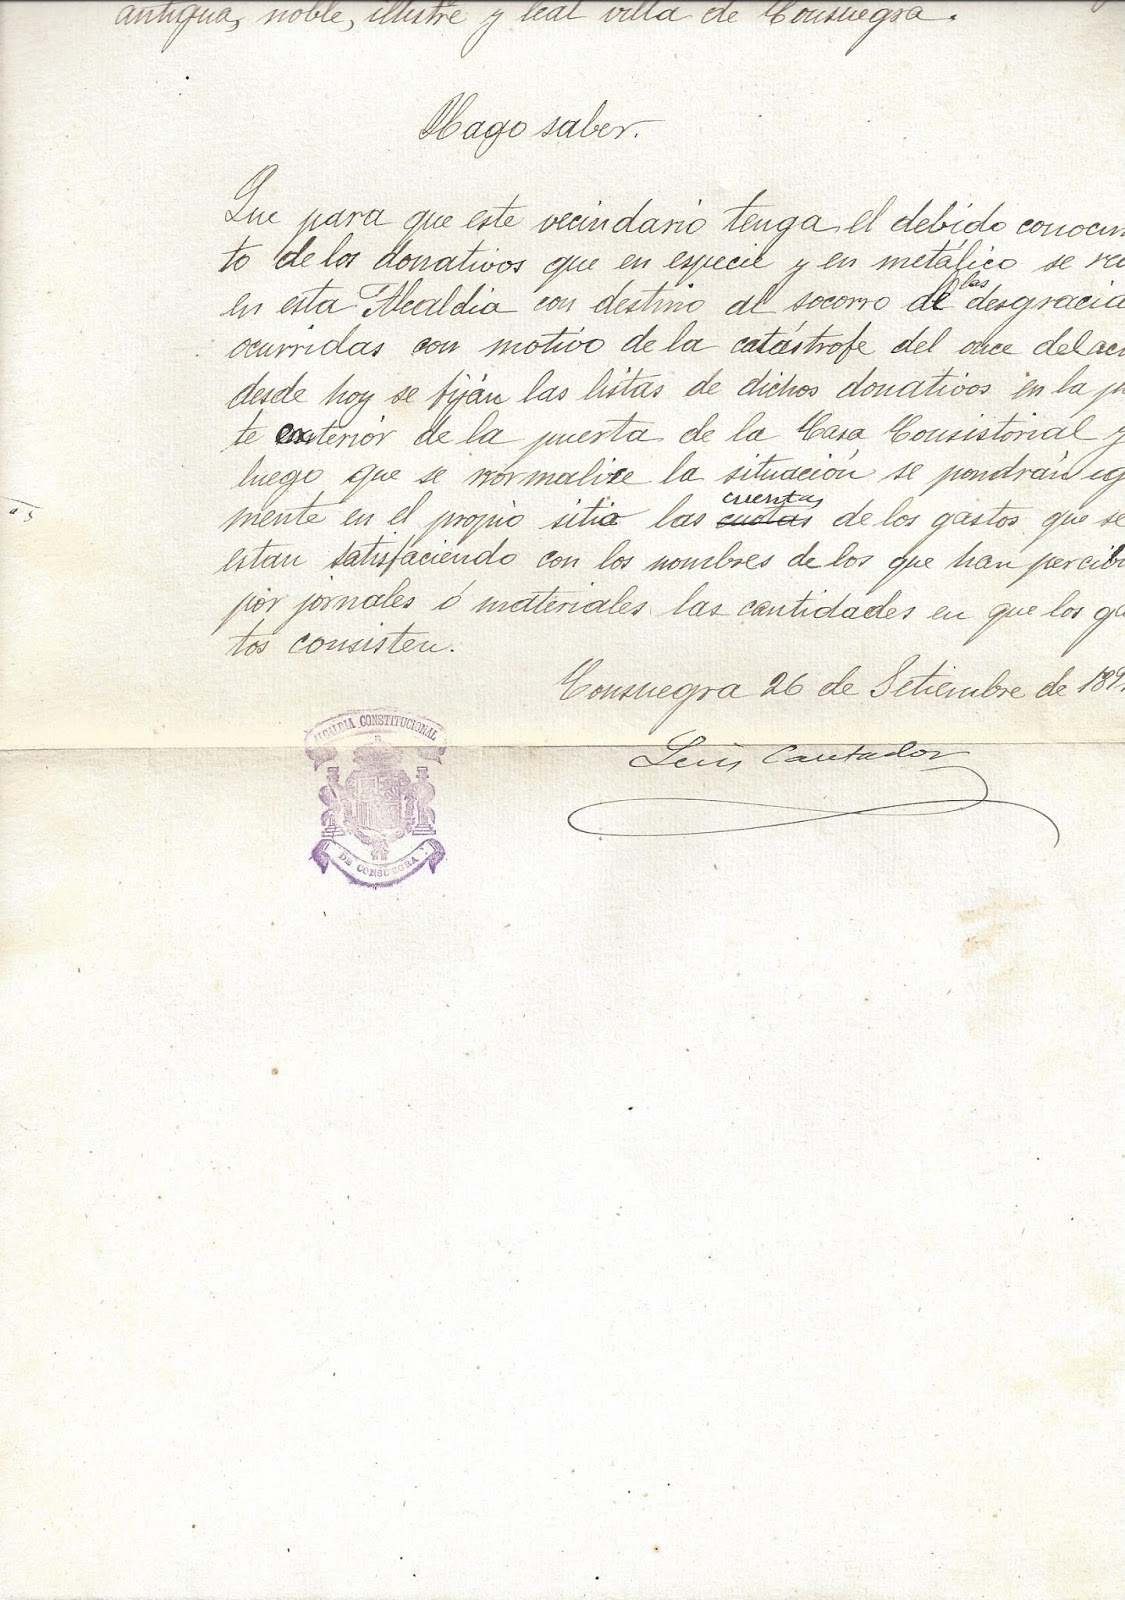 antigua, noble, illustre y leal villa de Consuegra.
Hago saber.
Que para que este vecindario tenga el debido conocim
to de los donativos que en especie y en metálico se rec
en esta Alcaldia con destino al socorro de las desgracia
ocurridas con motivo de la catástrofe del once del ac
desde hoy se fiján las listas de dichos donativos en la p
te exterior de la puerta de la Casa Consistorial y
luego que se normalice la situación se pondrán ig
mente en el propio sitio las cuotas cuentas de los gastos que se
estan satisfaciendo con los nombres de los que han percibi
por jornales ó materiales las cantidades en que los ga
tos consisten.
Consuegra 26 de Setiembre de 189
Luis Cantador
ALCALDIA CONSTITUCIONAL
DE CONSUEGRA